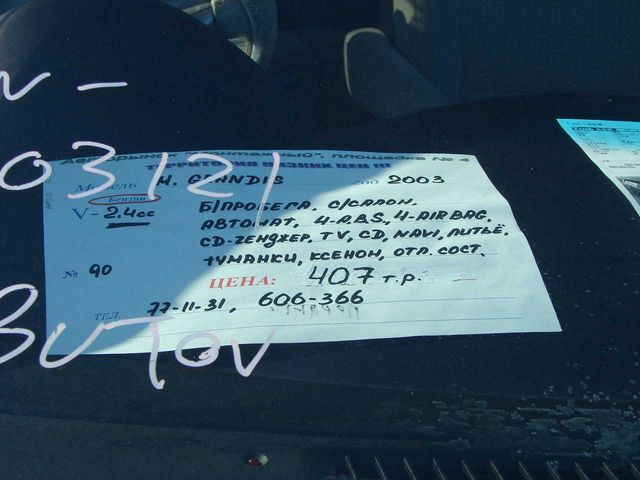 Авторынок "Монтажный", площадка № 4
ТЕРРИТОРИЯ НИЗКИХ ЦЕН !!!
03121
Модель M. GRANDIS год 2003
Бензин
V- 2.4cc Б/ПРОБЕГА. С/САЛОН.
АВТОМАТ, 4-A.B.S, 4-AIRBAG.
CD-ЧЕНДЖЕР. TV, CD, NAVI, ЛИТЬЁ.
№ 90 ТУМАНКИ, КСЕНОН, ОТЛ. СОСТ.
ЦЕНА: 407 т.р.
ТЕЛ. 77-11-31, 606-366
BUTOV